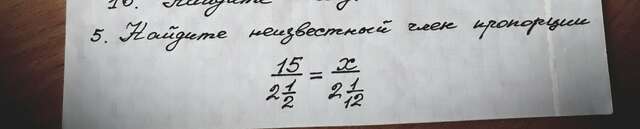 5. Найдите неизвестный член пропорции
15/2 1/2 = x/2 1/12